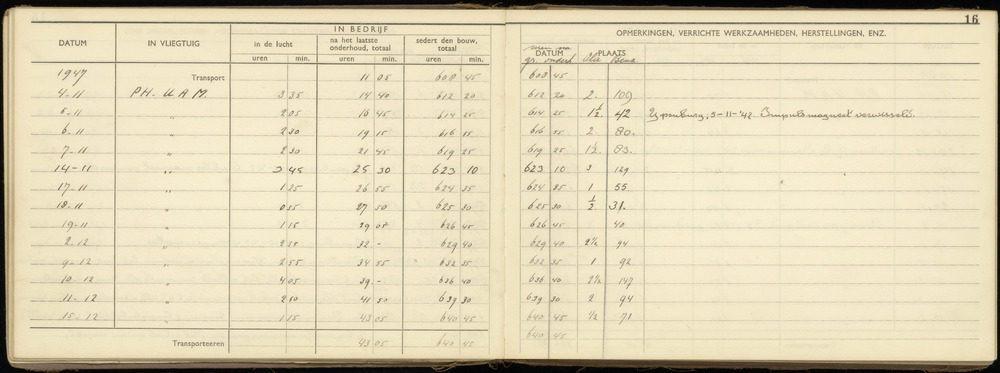 16
IN BEDRIJF
DATUM IN VLIEGTUIG in de lucht na het laatste onderhoud, totaal sedert den bouw, totaal
uren min. uren min. uren min.
DATUM PLAATS OPMERKINGEN, VERRICHTE WERKZAAMHEDEN, HERSTELLINGEN, ENZ.
uren na gr. onderh. Olie Benz.
1947 Transport 11 05 608 45 608 45
4-11 PH-UAM. 3 35 14 40 612 20 612 20 2. 109
5-11 " 2 05 16 45 614 25 614 25 1½ 42 Ypenburg, 5-11-'47. Impulsmagneet verwisseld.
6-11 " 2 30 19 15 616 55 616 55 2 80.
7-11 " 2 30 21 45 619 25 619 25 1½ 83.
14-11 " 3 45 25 30 623 10 623 10 3 129
17-11 " 1 25 26 55 624 35 624 35 1 55
18-11 " 0 55 27 50 625 30 625 30 ½ 31.
19-11 " 1 15 29 05 626 45 626 45 40
2-12 " 2 55 32 - 629 40 629 40 2½ 94
9-12 " 2 55 34 55 632 35 632 35 1 92
10-12 " 4 05 39 - 636 40 636 40 2½ 147
11-12 " 2 50 41 50 639 30 639 30 2 94
15-12 " 1 15 43 05 640 45 640 45 ½ 71
Transporteeren 43 05 640 45 640 45